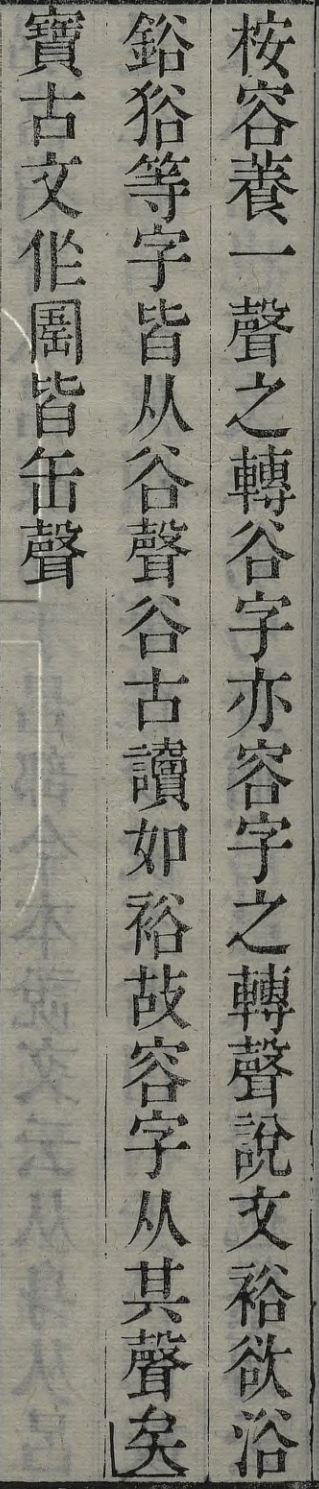 桉容養一聲之轉谷字亦容字之轉聲說文裕欲浴
鋊㺄等字皆从谷聲谷古讀如裕故容字从其聲矣
寶古文作𡈱皆缶聲